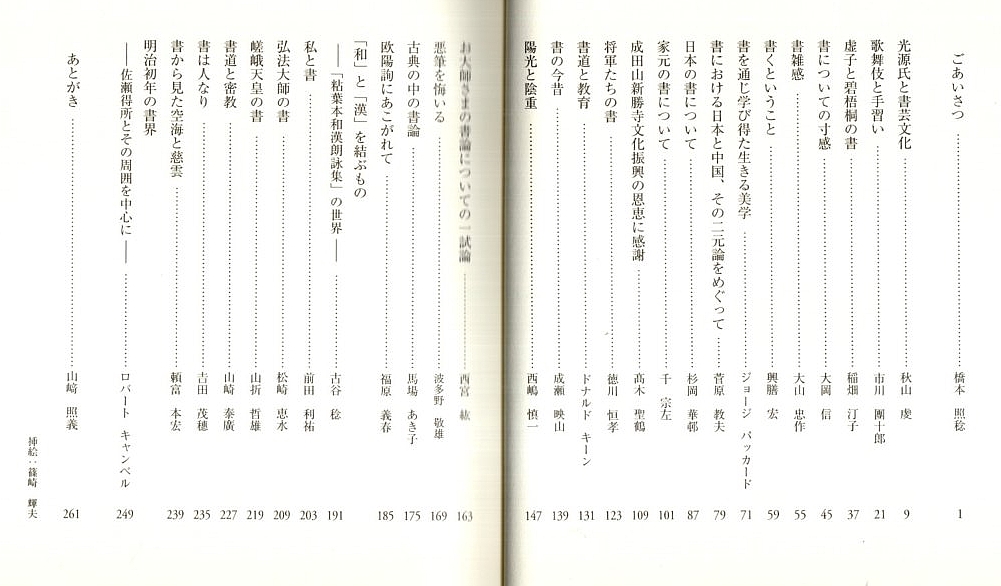 ごあいさつ 橋本 照稔 1
光源氏と書芸文化 秋山 虔 9
歌舞伎と手習い 市川 團十郎 21
虚子と碧梧桐の書 稲畑 汀子 37
書についての寸感 大岡 信 45
書雑感 大山 忠作 55
書くということ 興膳 宏 59
書を通じ学び得た生きる美学 ジョージ パッカード 71
書における日本と中国、その二元論をめぐって 菅原 教夫 79
日本の書について 杉岡 華邨 87
家元の書について 千 宗左 101
成田山新勝寺文化振興の恩恵に感謝 髙木 聖鶴 109
将軍たちの書 徳川 恒孝 123
書道と教育 ドナルド キーン 131
書の今昔 成瀬 映山 139
陽光と陰重 西嶋 慎一 147
お大師さまの書論についての一試論 西宮 紘 163
悪筆を悔いる 波多野 敬雄 169
古典の中の書論 馬場 あき子 175
欧陽詢にあこがれて 福原 義春 185
「和」と「漢」を結ぶもの
――「粘葉本和漢朗詠集」の世界―― 古谷 稔 191
私と書 前田 利祐 203
弘法大師の書 松崎 恵水 209
嵯峨天皇の書 山折 哲雄 219
書道と密教 山崎 泰廣 227
書は人なり 吉田 茂穂 235
書から見た空海と慈雲 頼富 本宏 239
明治初年の書界
――佐瀬得所とその周囲を中心に―― ロバート キャンベル 249
あとがき 山﨑 照義 261
挿絵：篠崎 輝夫